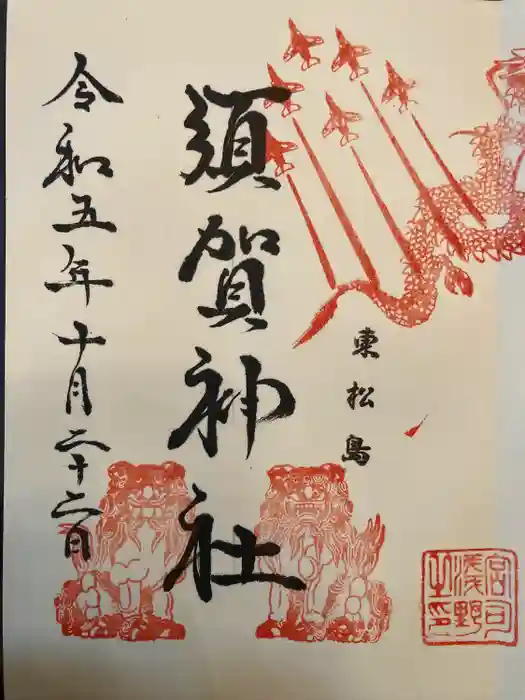 東松島
須賀神社
令和五年十月二十二日
宮司
浅野
之印